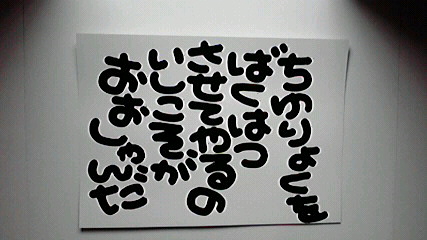 ちゆりょくを
ばくはつ
させてやるの
いしこそが
おおしゃんだ